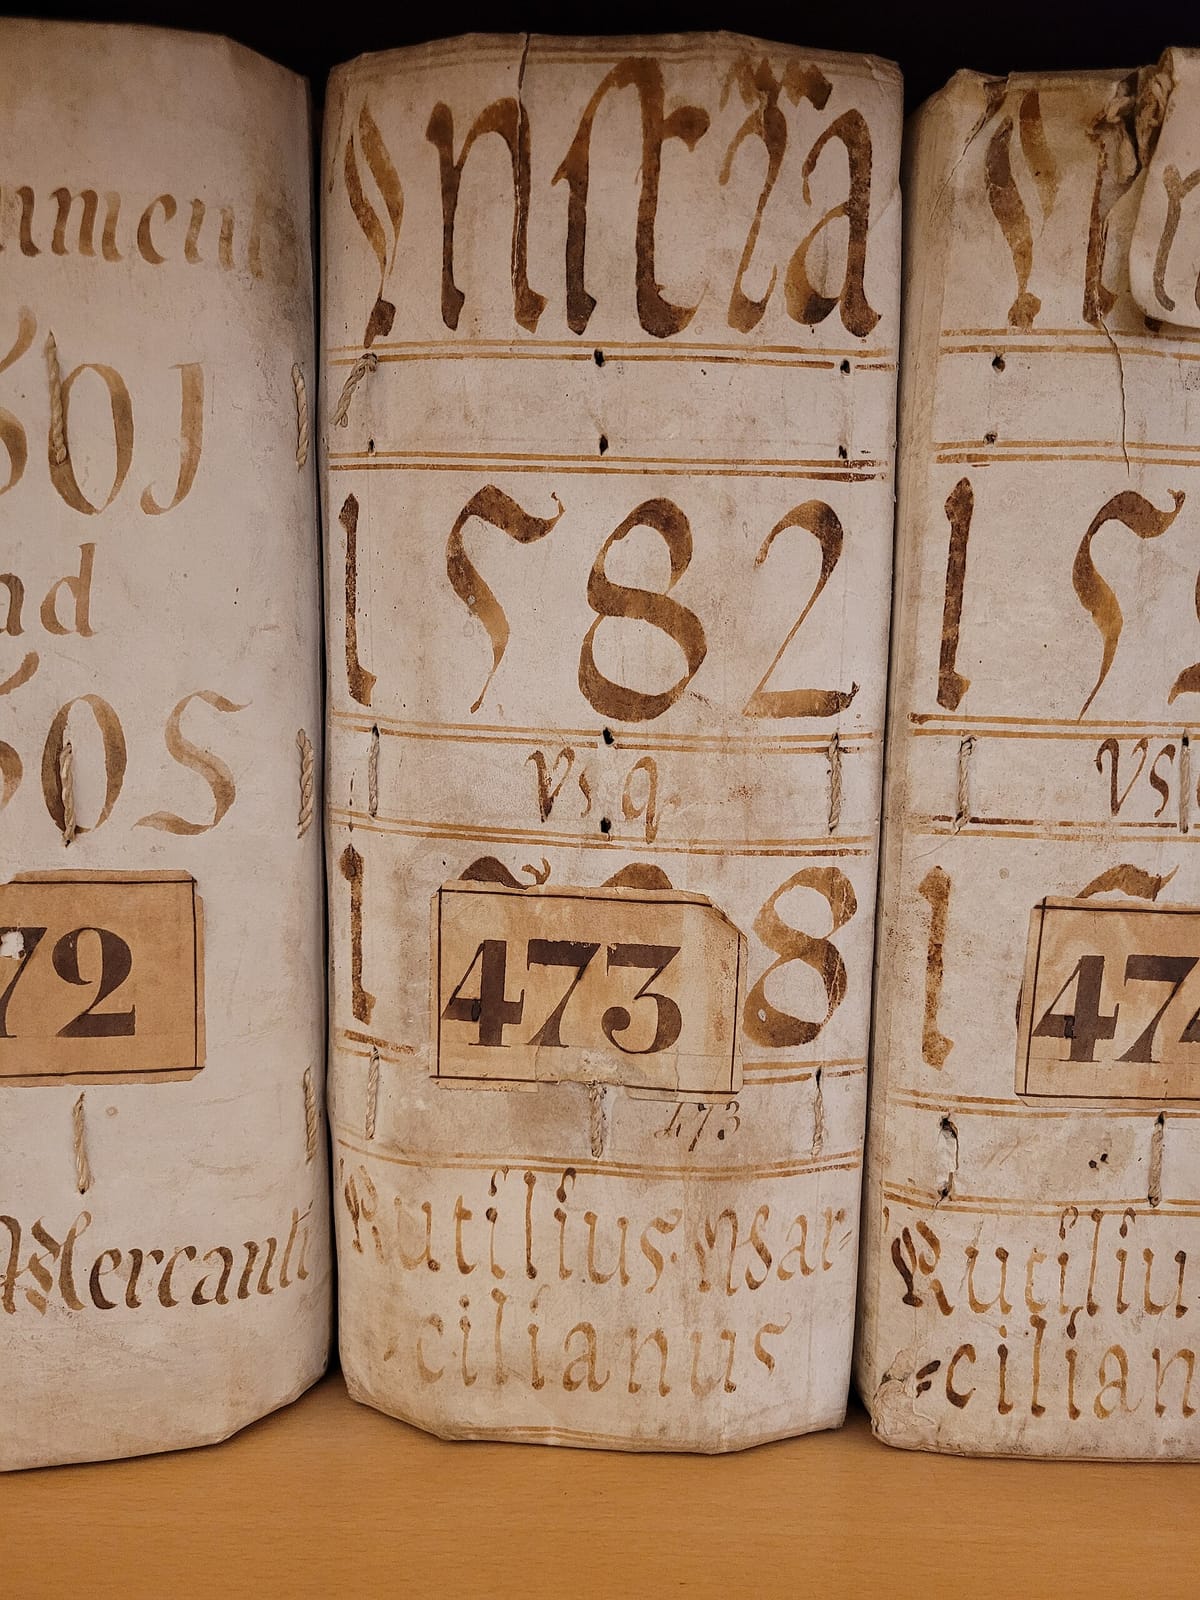 ument
60J
ad
60S
72
Mercanti
Instra
1582
vsq
1 8
473
473
Rutilius Mar=
=cilianus
15
vs
1
474
Rutiliu
=cilian